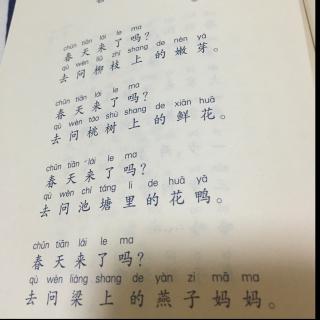 chūn tiān lái le ma
春天来了吗?
qù wèn liǔ zhī shang de nèn yá
去问柳枝上的嫩芽。
chūn tiān lái le ma
春天来了吗?
qù wèn táo shù shang de xiān huā
去问桃树上的鲜花。
chūn tiān lái le ma
春天来了吗?
qù wèn chí táng li de huā yā
去问池塘里的花鸭。
chūn tiān lái le ma
春天来了吗?
qù wèn liáng shang de yàn zi mā ma
去问梁上的燕子妈妈。